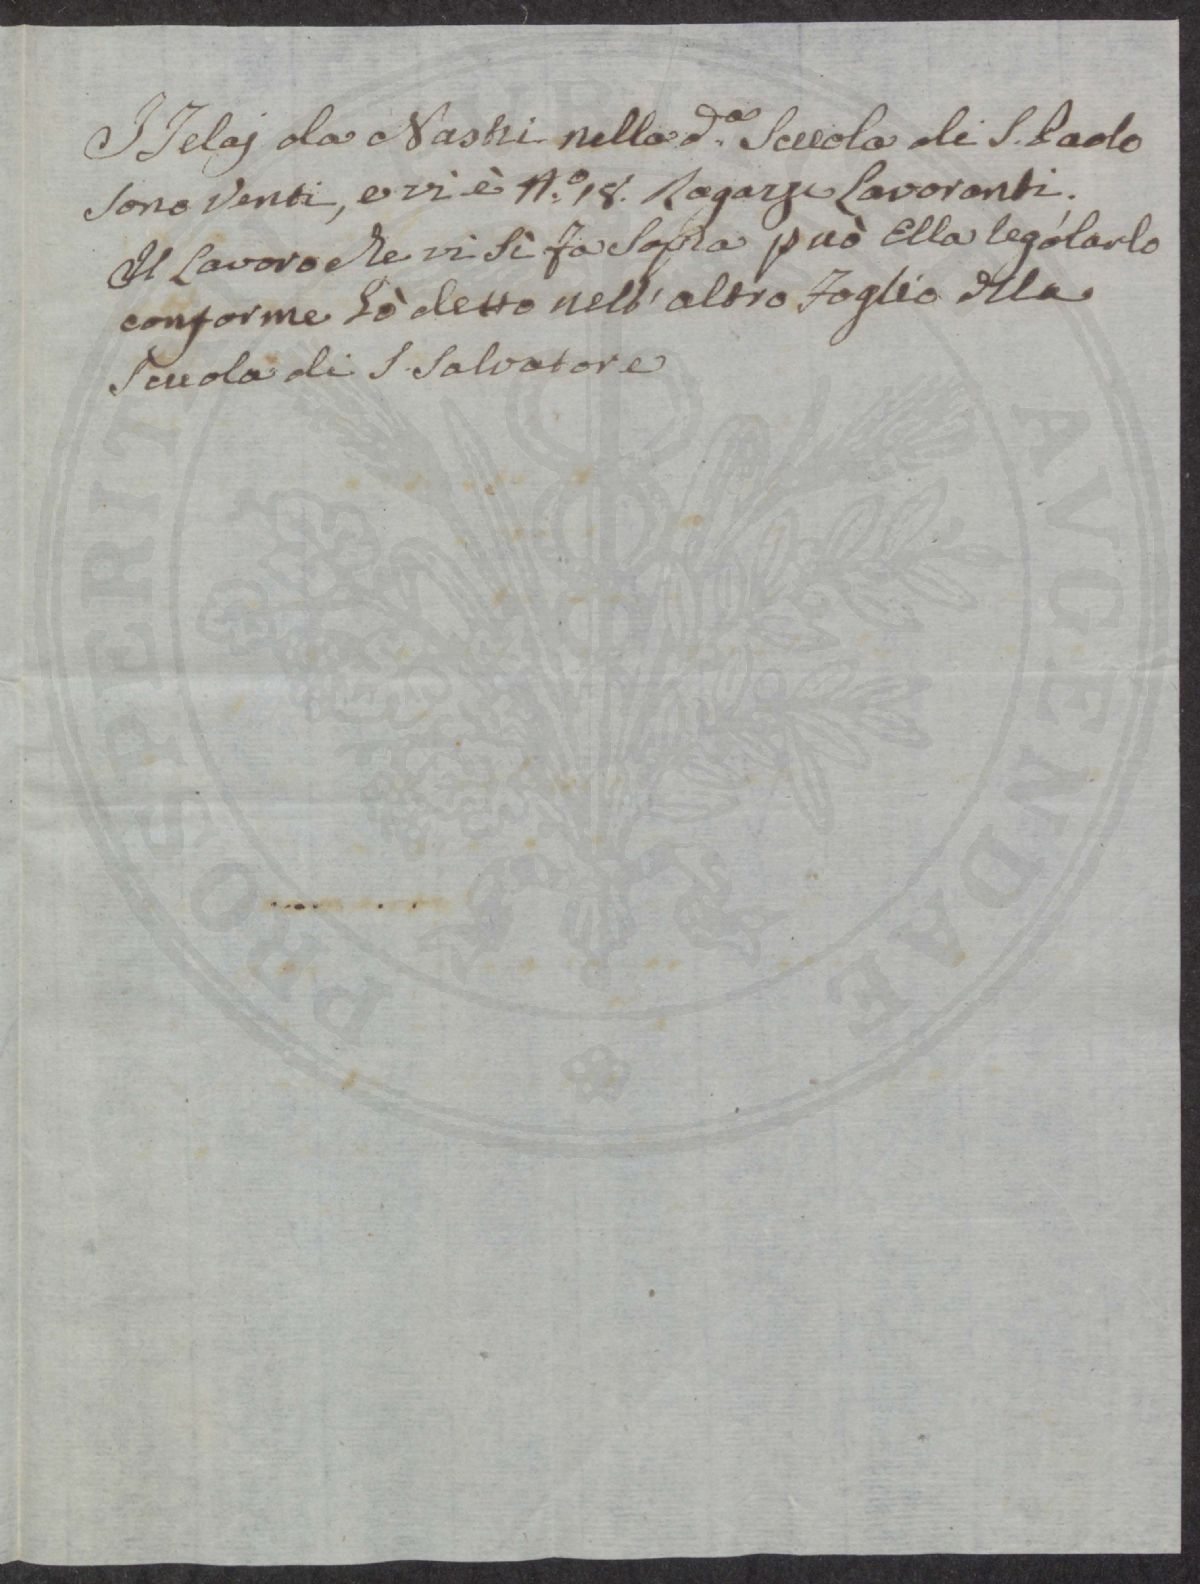 I Telaj da Nastri nella d.ª Scuola di S. Paolo
sono Venti, e vi è N.º 18. Ragazze Lavoranti.
Il Lavoro che vi si fa sopra può Ella regolarlo
conforme hò detto nell' altro Foglio della
Scuola di S. Salvatore
PROSPERITATI AVGENDAE